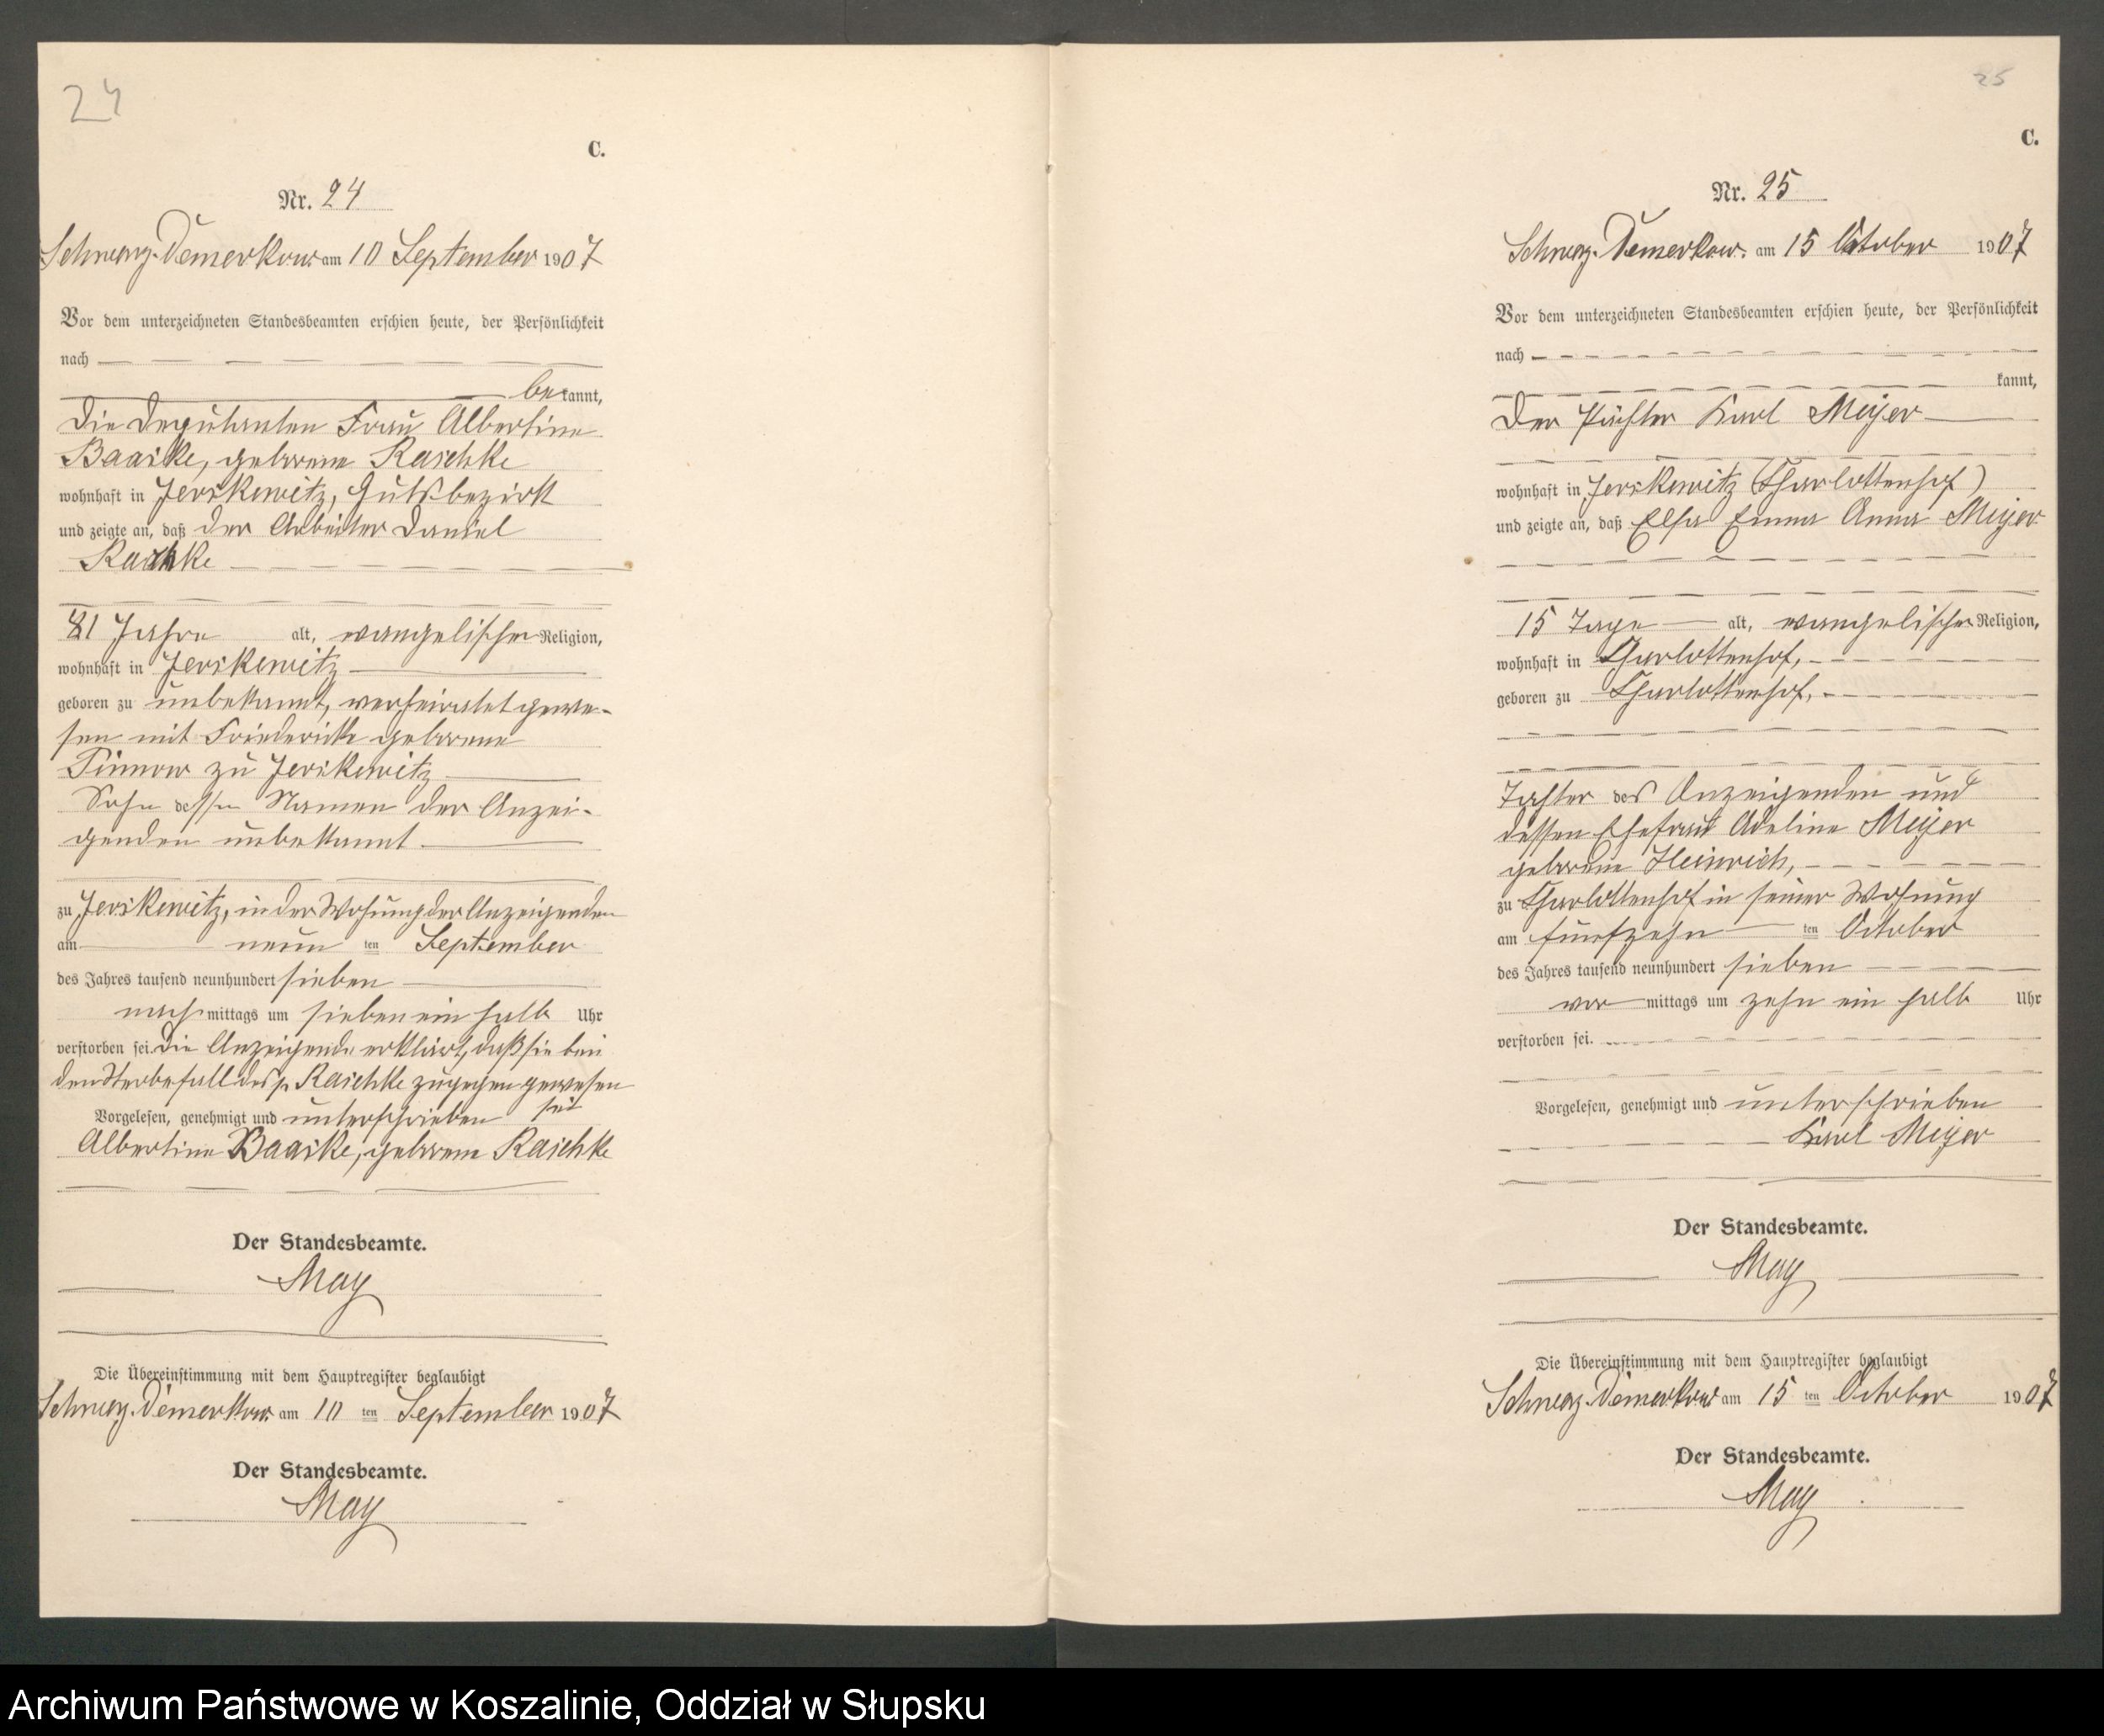 24
C.
Nr. 24
Schwarz-Damerkow. am 10 September 1907
Vor dem unterzeichneten Standesbeamten erschien heute, der Persönlichkeit
nach
bekannt,
die Deputanten Frau Albertine
Baaske, geborene Raschke
wohnhaft in Jerskewitz, Gutsbezirk
und zeigte an, daß der Arbeiter Daniel
Raschke
81 Jahre alt, evangelischer Religion,
wohnhaft in Jerskewitz
geboren zu unbekannt, verheiratet gewe-
sen mit Friedericke geborene
Pinnow zu Jerskewitz
Sohn dessen Namen der Anzei-
genden unbekannt.
zu Jerskewitz, in der Wohnung der Anzeigenden
am neun ten September
des Jahres tausend neunhundert sieben
nach mittags um sieben ein halb Uhr
verstorben sei. Die Anzeigende erklärt, daß sie bei
den Sterbefall des p. Raschke zugegen gewesen
sei
Vorgelesen, genehmigt und unterschrieben
Albertine Baaske, geborene Raschke
Der Standesbeamte.
May
Die Übereinstimmung mit dem Hauptregister beglaubigt
Schwarz-Damerkow. am 10 ten September 1907
Der Standesbeamte.
May
25
C.
Nr. 25
Schwarz-Damerkow. am 15 October 1907
Vor dem unterzeichneten Standesbeamten erschien heute, der Persönlichkeit
nach
kannt,
Der Pächter Karl Meyer
wohnhaft in Jerskewitz (Charlottenhof)
und zeigte an, daß Elsa Emma Anna Meyer
15 Tage alt, evangelischer Religion,
wohnhaft in Charlottenhof,
geboren zu Charlottenhof,
Tochter des Anzeigenden und
dessen Ehefrau Adeline Meyer
geborene Heinrich,
zu Charlottenhof in seiner Wohnung
am fünfzehn ten October
des Jahres tausend neunhundert sieben
vor mittags um zehn ein halb Uhr
verstorben sei.
Vorgelesen, genehmigt und unterschrieben
Karl Meyer
Der Standesbeamte.
May
Die Übereinstimmung mit dem Hauptregister beglaubigt
Schwarz-Damerkow am 15 ten October 1907
Der Standesbeamte.
May
Archiwum Państwowe w Koszalinie, Oddział w Słupsku